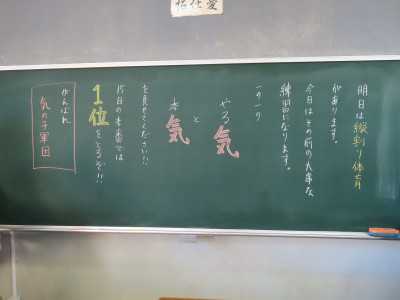 明日は縦割り体育
があります。
今日はその前の大事な
練習になります。
一の一の
やる気
と
本気
を見せてください!!
15日の本番では
1位をとるぞ!!
がんばれ
気の子軍団